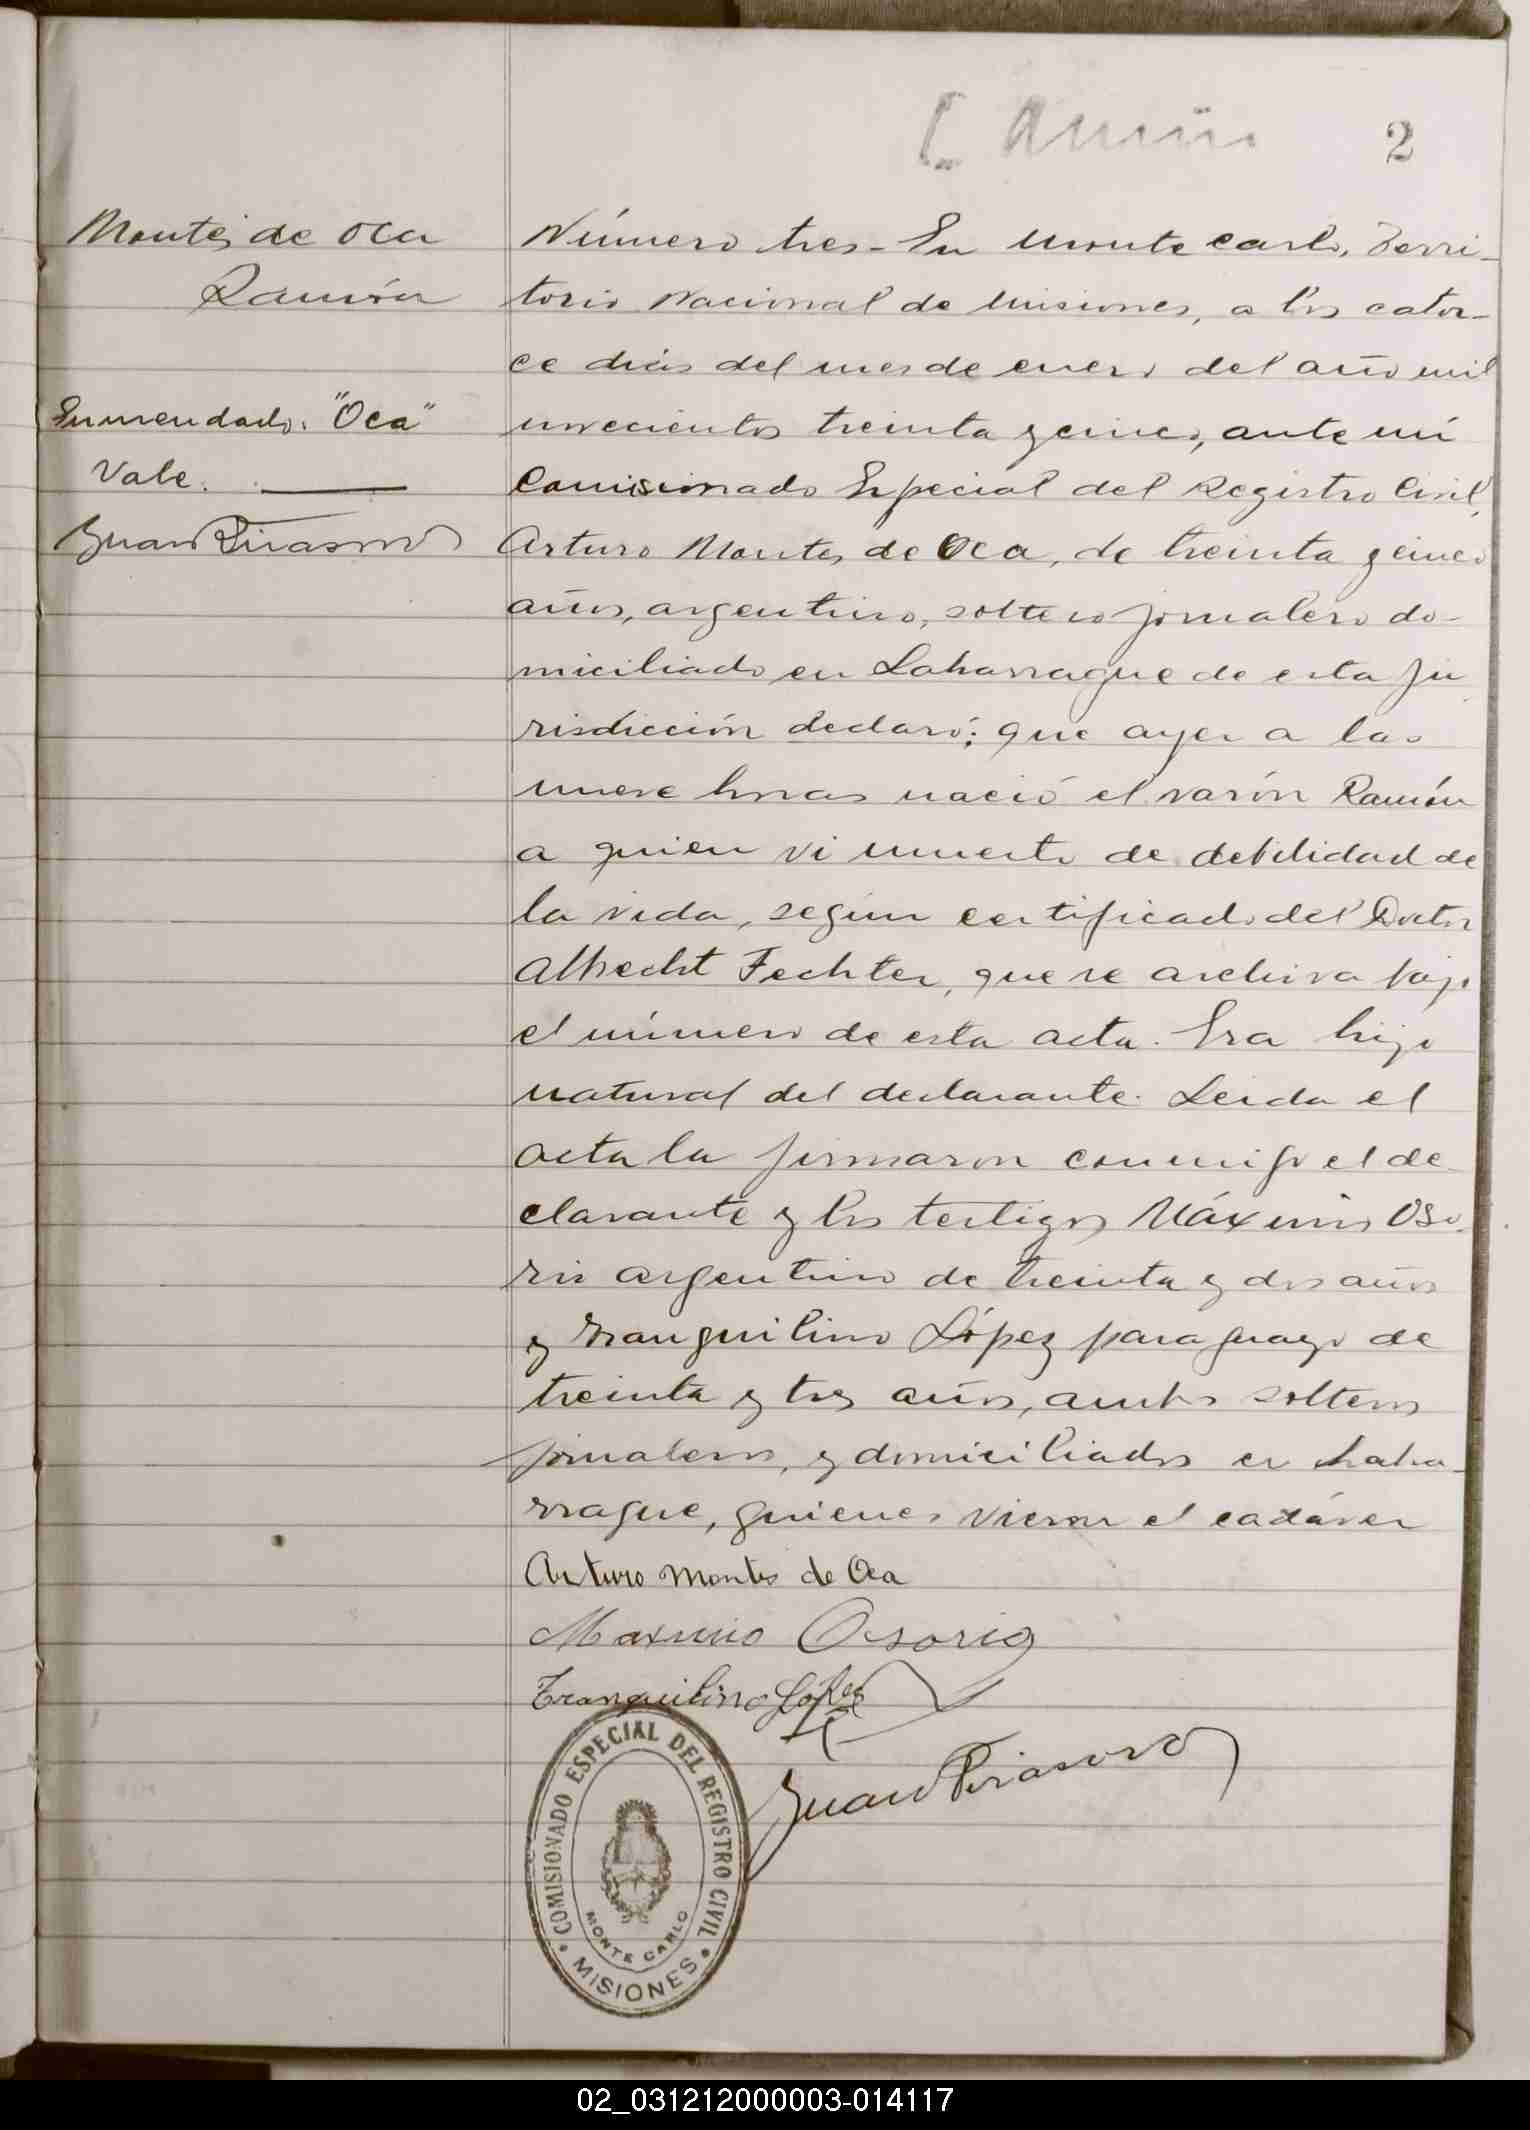 2
Montes de Oca
Ramón
Enmendado: "Oca"
Vale.
Número tres - En Monte carlo, Terri-
torio Nacional de Misiones, a los cator-
ce días del mes de enero del año mil
novecientos treinta y cinco, ante mí
Comisionado Especial del Registro Civil,
Arturo Montes de Oca, de treinta y cinco
años, argentino, soltero jornalero do-
miciliado en Laharrague de esta ju
risdicción declaró; que ayer a las
nueve horas nació el varón Ramón
a quien vi muerto de debilidad de
la vida, según certificado del Doctor
Albrecht Fechter, que se archiva bajo
el número de esta acta. Era hijo
natural del declarante. Leida el
acta la firmaron conmigo el de-
clarante y los testigos Máximo Oso-
rio argentino de treinta y dos años
y Tranquilino López paraguayo de
treinta y tres años, ambos solteros
jornaleros, y domiciliados en Laha-
rrague, quienes vieron el cadáver
Arturo Montes de Oca
Maximo Osorio
Tranquilino López
Juan
COMISIONADO ESPECIAL DEL REGISTRO CIVIL
MONTE CARLO
MISIONES
02_031212000003-014117